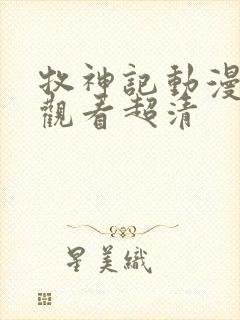 牧神記動漫
觀看超清
星美織